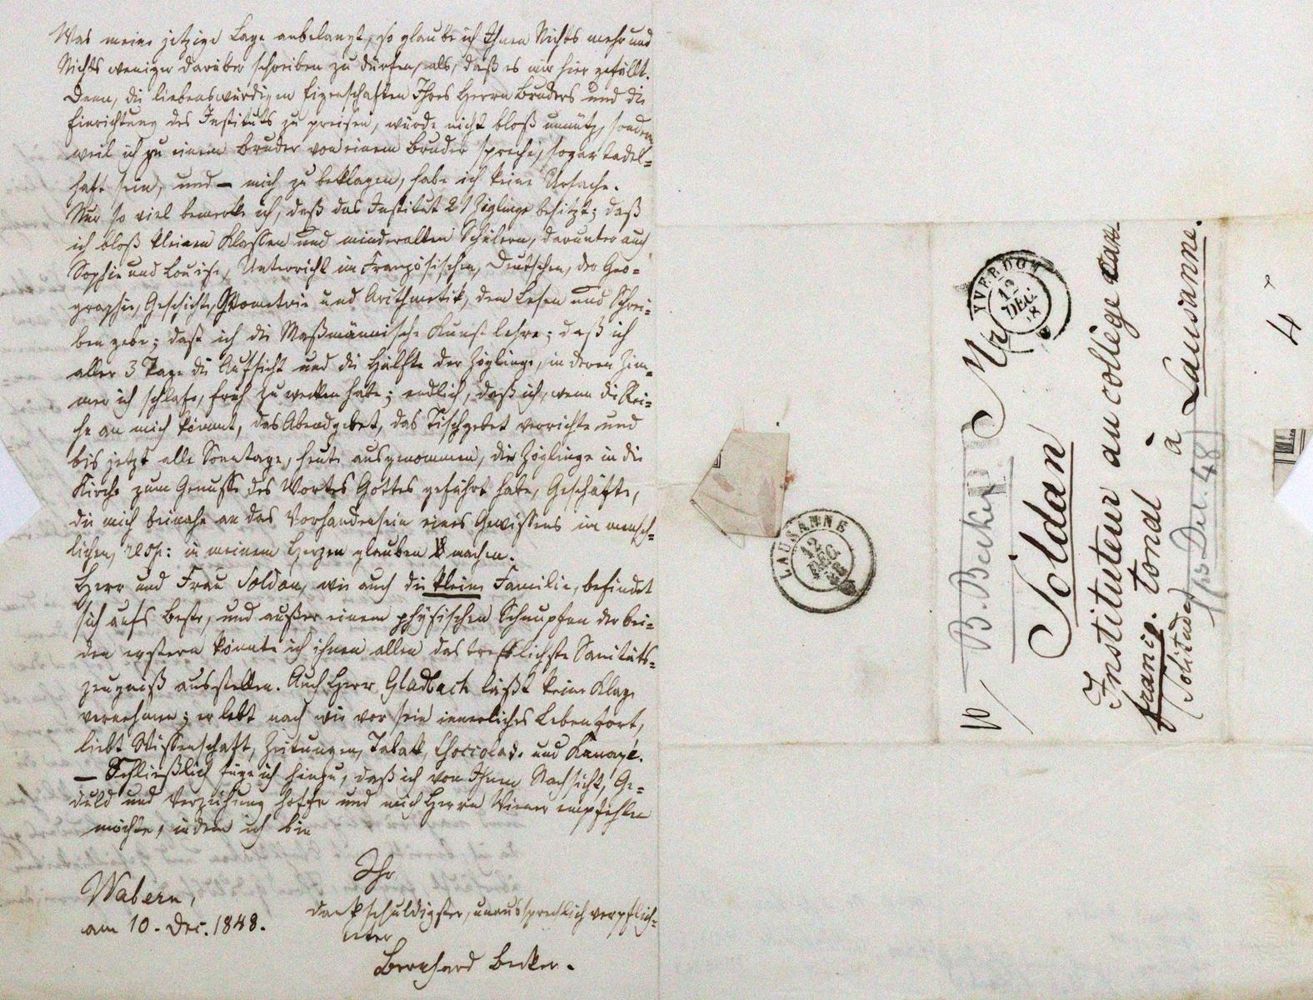 Was meine jetzige Lage anbelangt, so glaube ich Ihnen Nichts mehr und
Nichts weniger darüber schreiben zu dürfen, als, daß es mir hier gefällt.
Denn, die liebenswürdigen Eigenschaften Ihres Herrn Bruders und die
Einrichtung des Instituts zu preisen, würde nicht bloß unnütz, sondern
weil ich zu einem Bruder von einem Bruder spreche, sogar tadel-
haft sein, und – mich zu beklagen, habe ich keine Ursache.
Nur so viel bemerke ich, daß das Institut 21 Zöglinge besitzt; daß
ich bloß kleinen Klassen und minderalten Schülern, darunter auch
Sophie und Louise, Unterricht im Französischen, Deutschen, der Geo-
graphie, Geschichte, Geometrie und Arithmetik, dem Lesen und Schrei-
ben gebe; daß ich die Maßmännische Kunst lehre; daß ich
aller 3 Tage die Aufsicht und die Hälfte der Zöglinge, in deren Zim-
mer ich schlafe, früh zu wecken habe; endlich, daß ich, wenn die Rei-
he an mich kömmt, das Abendgebet, das Tischgebet verrichte und
bis jetzt alle Sonntage, heute ausgenommen, die Zöglinge in die
Kirche zum Genusse des Wortes Gottes geführt habe, Geschäfte,
die mich beinahe an das Vorhandensein eines Gewissens im mensch-
lichen, resp: in meinem Herzen glauben machen.
Herr und Frau Soldan, wie auch die kleine Familie, befindet
sich aufs Beste, und außer einem physischen Schnupfen der bei-
den erstern könnte ich ihnen allen das trefflichste Sanitäts-
zeugniß ausstellen. Auch Herr Gladbach läßt keine Klage
vernehmen; er lebt nach wie vor sein innerliches Leben fort,
liebt Wissenschaft, Zeitungen, Taback, Choccolad. und Kanapé.
– Schließlich füge ich hinzu, daß ich von Ihnen Nachsicht, Ge-
duld und Verzeihung hoffe und mich Herrn Wiener empfehlen
möchte, indem ich bin
Ihr
dankschuldigster, unaussprechlich verpflich-
teter
Bernhard Becker.
Wabern,
am 10. Dec. 1848.
YVERDON
12
DEC.
48
LAUSANNE
12
DEC.
48
B. Becker
Mr
Soldan
Instituteur au collège
franç. tonal à Lausanne.
(Solitude)
Dec. 48
4